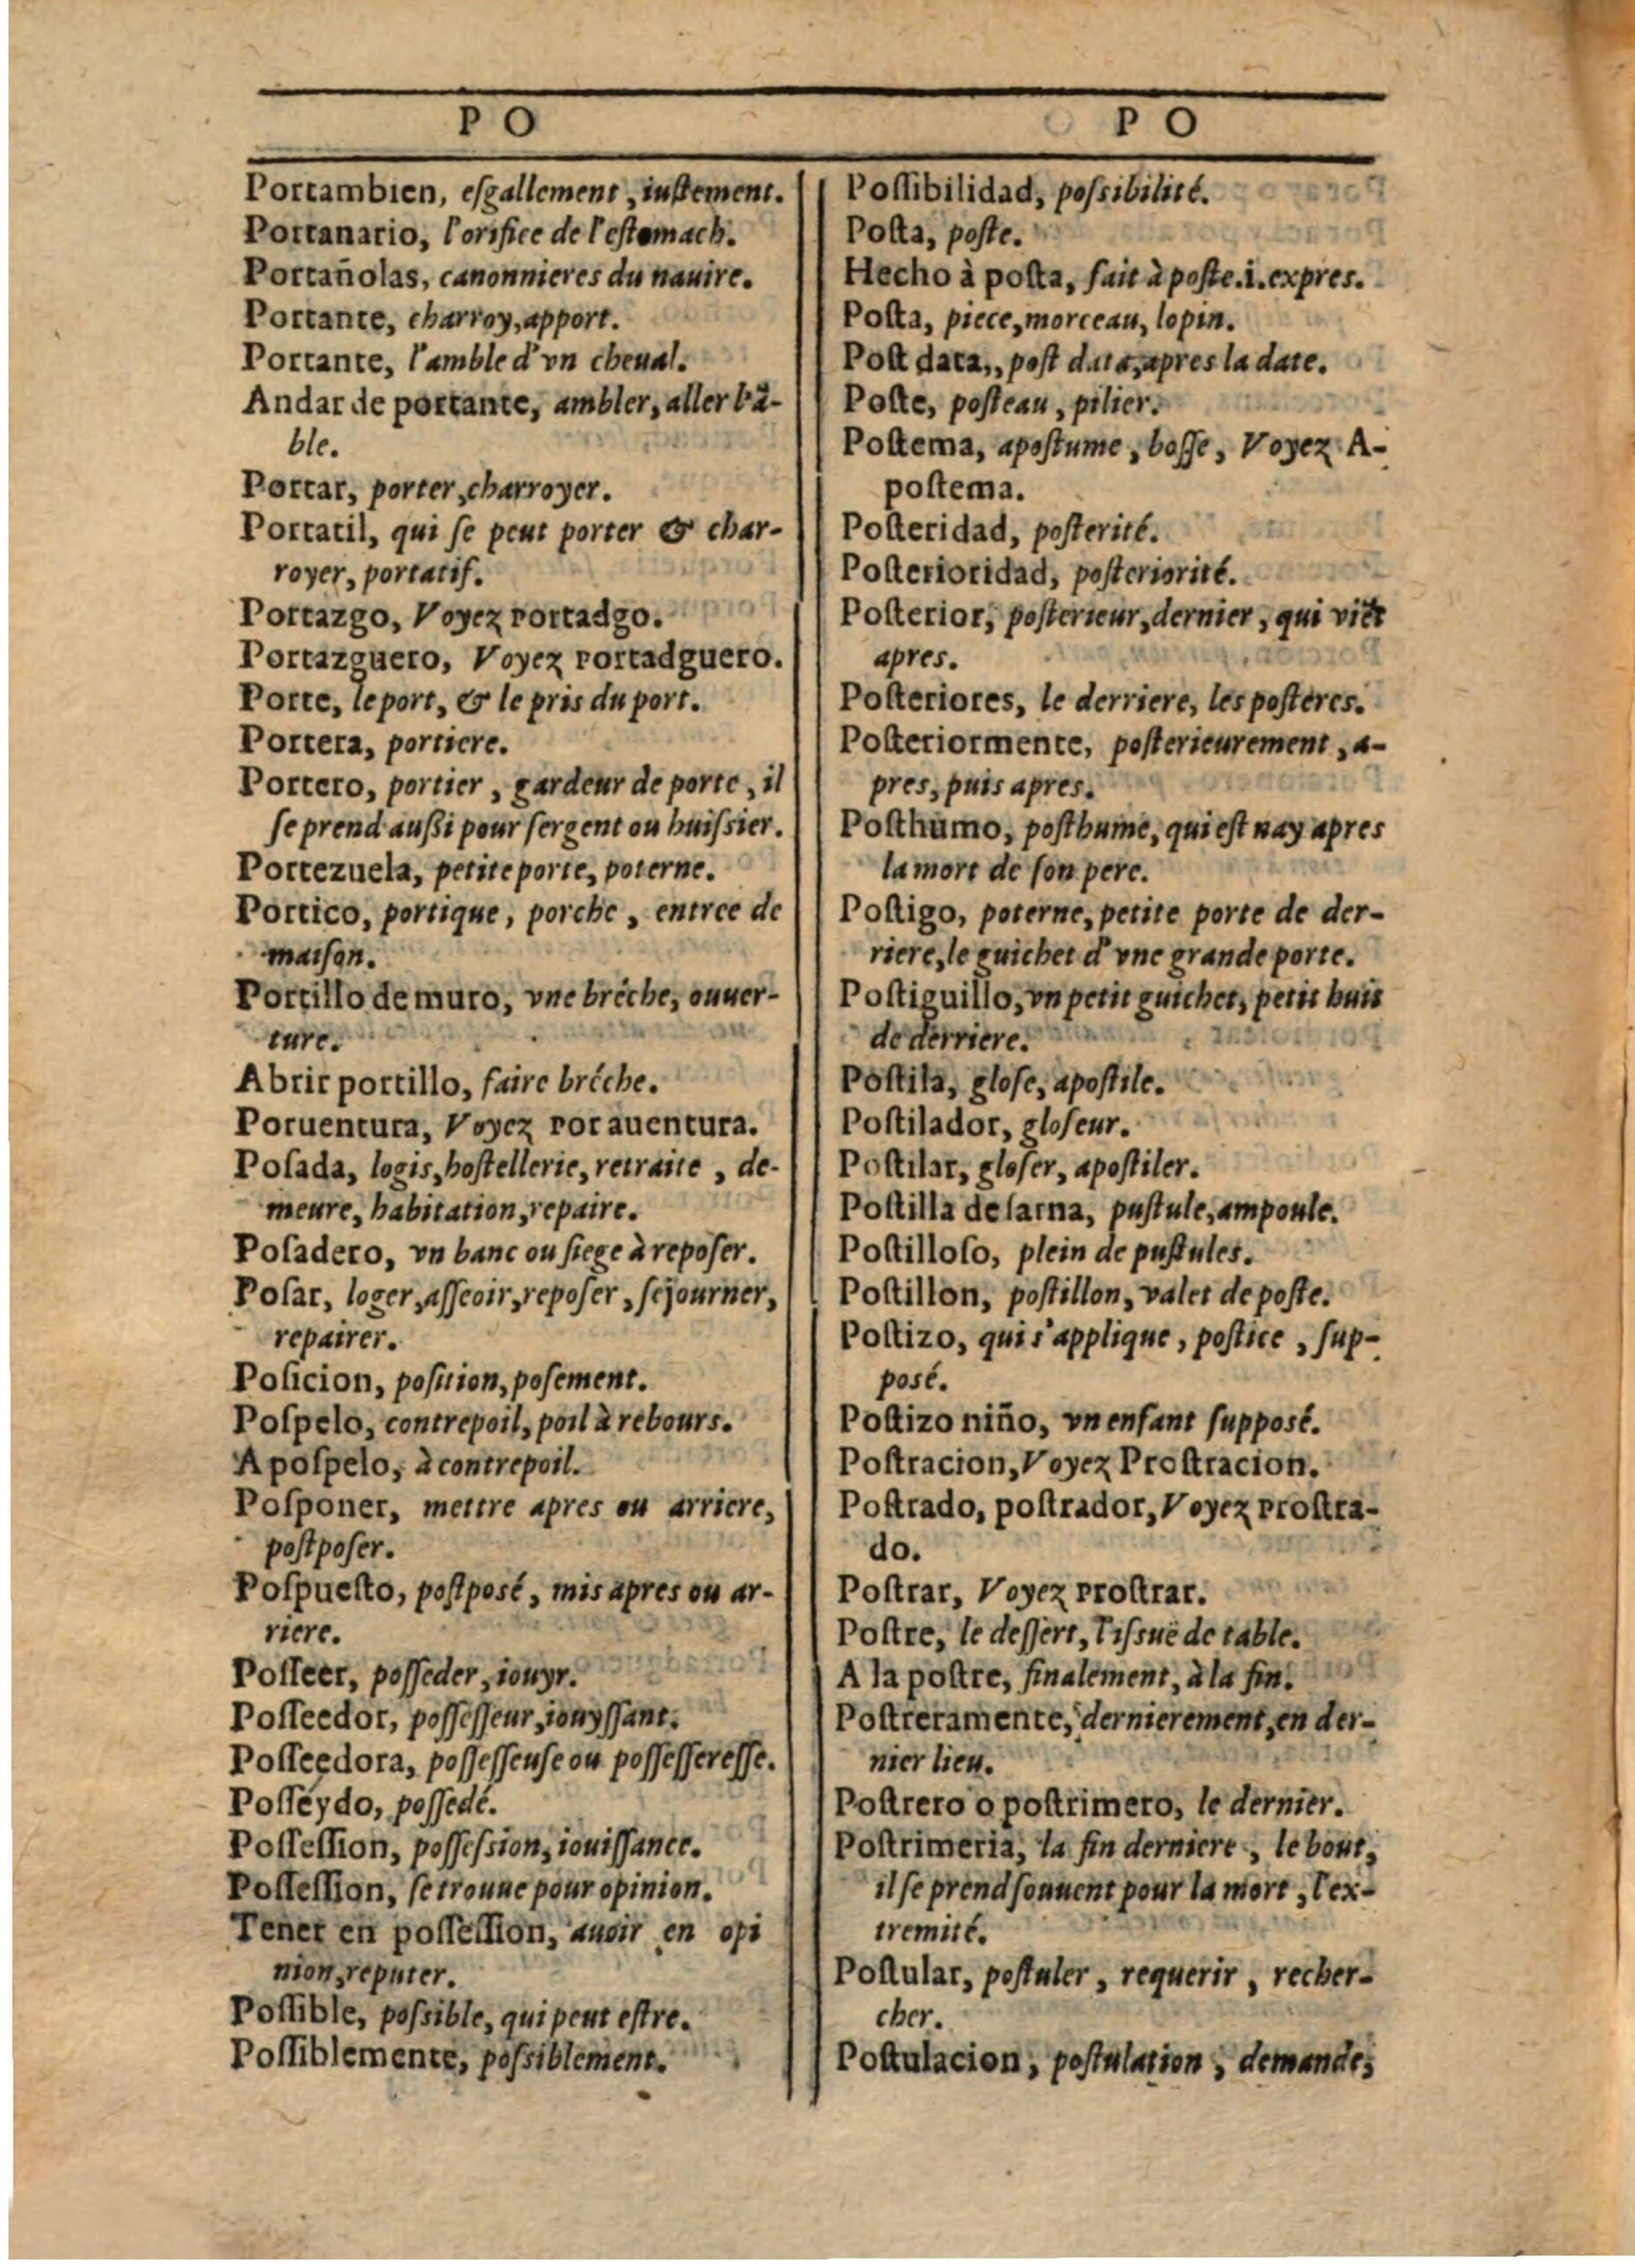 PO
Portambien, eſgallement, iuſtement.
Portanario, l'orifice de l'eſtomach.
Portañolas, canonnieres du nauire.
Portante, charroy, apport.
Portante, l'amble d'vn cheual.
Andar de portante, ambler, aller l'ã-
ble.
Portar, porter, charroyer.
Portatil, qui ſe peut porter & char-
royer, portatif.
Portazgo, Voyez Portadgo.
Portazguero, Voyez Portadguero.
Porte, le port, & le pris du port.
Portera, portiere.
Portero, portier, gardeur de porte, il
ſe prend außi pour ſergent ou huiſsier.
Portezuela, petite porte, poterne.
Portico, portique, porche, entree de
maiſon.
Portillo de muro, vne bréche, ouuer-
ture.
Abrir portillo, faire bréche.
Poruentura, Voyez Por auentura.
Poſada, logis, hoſtellerie, retraite, de-
meure, habitation, repaire.
Poſadero, vn banc ou ſiege à repoſer.
Poſar, loger, aſſeoir, repoſer, ſejourner,
repairer.
Poſicion, poſition, poſement.
Poſpelo, contrepoil, poil à rebours.
A poſpelo, à contrepoil.
Poſponer, mettre apres ou arriere,
poſtpoſer.
Poſpueſto, poſtposé, mis apres ou ar-
riere.
Poſſeer, poſſeder, iouyr.
Poſſeedor, poſſeſſeur, iouyſſant.
Poſſeedora, poſſeſſeuſe ou poſſeſſereſſe.
Poſſeydo, poſſedé.
Poſſeſſion, poſſeſsion, iouiſſance.
Poſſeſſion, ſe trouue pour opinion.
Tener en poſſeſſion, auoir en opi
nion, reputer.
Poſſible, poſsible, qui peut eſtre.
Poſſiblemente, poſsiblement.
PO
Poſſibilidad, poſsibilité.
Poſta, poſte.
Hecho à poſta, fait à poſte.i.expres.
Poſta, piece, morceau, lopin.
Poſt data,, poſt data, apres la date.
Poſte, poſteau, pilier.
Poſtema, apoſtume, boſſe, Voyez A-
poſtema.
Poſteridad, poſterité.
Poſterioridad, poſteriorité.
Poſterior, poſterieur, dernier, qui viẽt
apres.
Poſteriores, le derriere, les poſteres.
Poſteriormente, poſterieurement, a-
pres, puis apres.
Poſthumo, poſthume, qui eſt nay apres
la mort de ſon pere.
Poſtigo, poterne, petite porte de der-
riere, le guichet d'vne grande porte.
Poſtiguillo, vn petit guichet, petit huis
de derriere.
Poſtila, gloſe, apoſtile.
Poſtilador, gloſeur.
Poſtilar, gloſer, apoſtiler.
Poſtilla de ſarna, puſtule, ampoule.
Poſtilloſo, plein de puſtules.
Poſtillon, poſtillon, valet de poſte.
Poſtizo, qui s'applique, poſtice, ſup-
posé.
Poſtizo niño, vn enfant ſupposé.
Poſtracion, Voyez Proſtracion.
Poſtrado, poſtrador, Voyez Proſtra-
do.
Poſtrar, Voyez Proſtrar.
Poſtre, le deſſert, l'iſsuë de table.
A la poſtre, finalement, à la fin.
Poſtreramente, dernierement, en der-
nier lieu.
Poſtrero o poſtrimero, le dernier.
Poſtrimeria, la fin derniere, le bout,
il ſe prend ſouuent pour la mort, l'ex-
tremité.
Poſtular, poſtuler, requerir, recher-
cher.
Poſtulacion, poſtulation, demande,